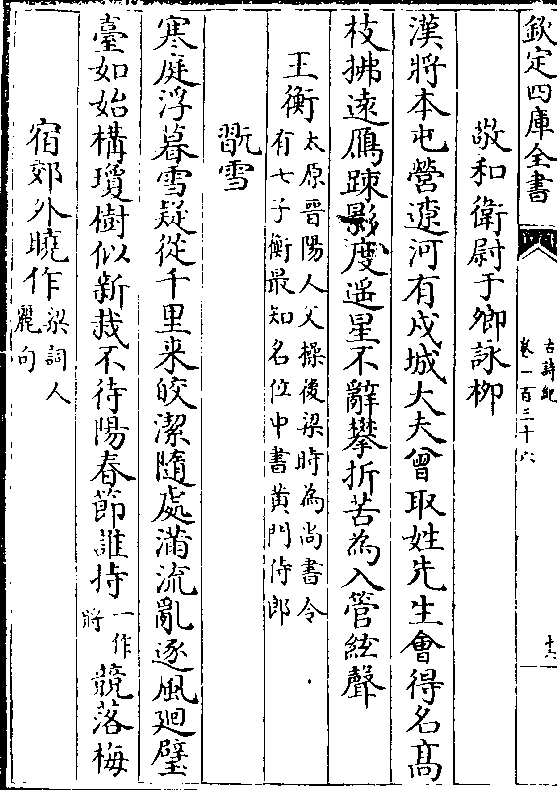 欽定四庫全書
古詩紀
卷一百三十六
十六
敬和衛尉于卿詠柳
漢將本屯營遼河有戍城大夫曾取姓先生會得名髙
枝拂逺鴈踈影度遥星不辭攀折苦為入管絃聲
王衡太原晉陽人父操後梁時為尚書令
有七子衡最知名位中書黄門侍郎
翫雪
寒庭浮暮雪疑從千里来皎潔隨處滿流亂逐風廻璧
臺如始構瓊樹似新栽不待陽春節誰持一作
將競落梅
宿郊外曉作梁詞人
麗句